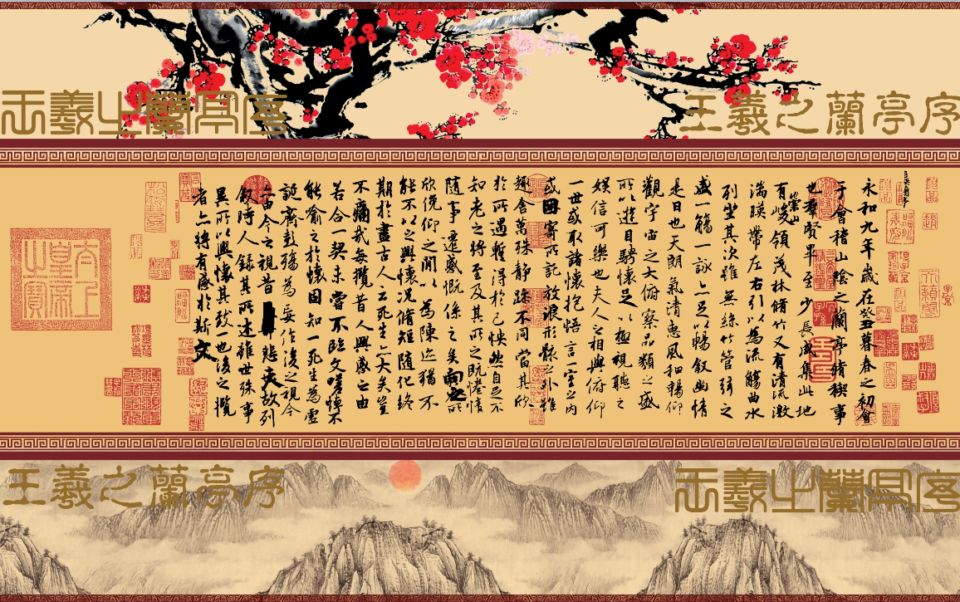 王羲之蘭亭序
王羲之蘭亭序
永和九年歲在癸丑暮春之初會
于會稽山陰之蘭亭脩稧事
也群賢畢至少長咸集此地
有崇山峻領茂林脩竹又有清流激
湍暎帶左右引以為流觴曲水
列坐其次雖無絲竹管弦之
盛一觴一詠亦足以暢叙幽情
是日也天朗氣清惠風和暢仰
觀宇宙之大俯察品類之盛
所以遊目騁懷足以極視聽之
娛信可樂也夫人之相與俯仰
一世或取諸懷抱悟言一室之內
或因寄所託放浪形骸之外雖
趣舍萬殊靜躁不同當其欣
於所遇暫得於己怏然自足不
知老之將至及其所之既惓情
隨事遷感慨係之矣向之所
欣俛仰之閒以為陳迹猶不
能不以之興懷況脩短隨化終
期於盡古人云死生亦大矣豈
不痛哉每攬昔人興感之由
若合一契未嘗不臨文嗟悼不
能喻之於懷固知一死生為虛
誕齊彭殤為妄作後之視今
亦由今之視昔悲夫故列
叙時人錄其所述雖世殊事
異所以興懷其致一也後之攬
者亦將有感於斯文
太上皇帝之寶
王羲之蘭亭序
王羲之蘭亭序